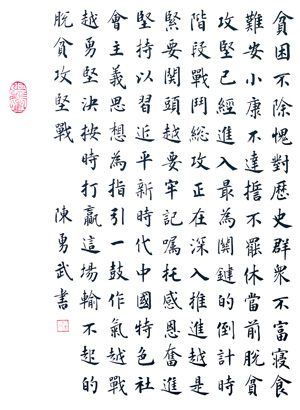 貧困不除愧對歷史群眾不富寢食
難安小康不達誓不罷休當前脫貧
攻堅已經進入最為關鍵的倒計時
階段戰鬥總攻正在深入推進越是
緊要関頭越要牢記囑托感恩奮進
堅持以習近平新時代中國特色社
會主義思想為指引一鼓作氣越戰
越勇堅決按時打贏這場輸不起的
脫貧攻堅戰 陳勇武書